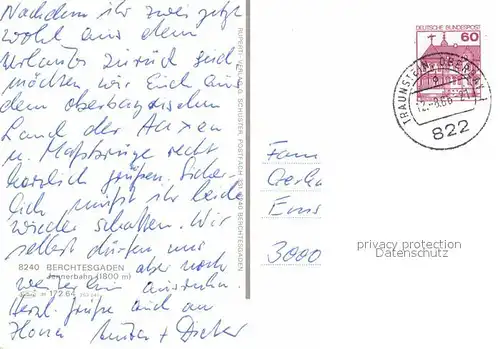 Nachdem ihr zwei jetzt
wohl aus dem
Urlaub zurück seid
möchten wir Euch aus
dem oberbayrischen
Land der Haxen
u. Maßkrüge recht
herzlich grüßen. Sicher-
lich müßt ihr beide
wieder schaffen. Wir
selbst dürfen uns
aber noch
weiterhin ausruhn.
Herzl. Grüße auch an
+ Dieter
8240 BERCHTESGADEN
Jennerbahn (1800 m)
172.64
RUPERTI-VERLAG G. SCHUSTER, POSTFACH 8240 BERCHTESGADEN
DEUTSCHE BUNDESPOST
60
TRAUNSTEIN, OBERBAY
822
Fam
Gerha
Erns
3000
privacy protection
Datenschutz